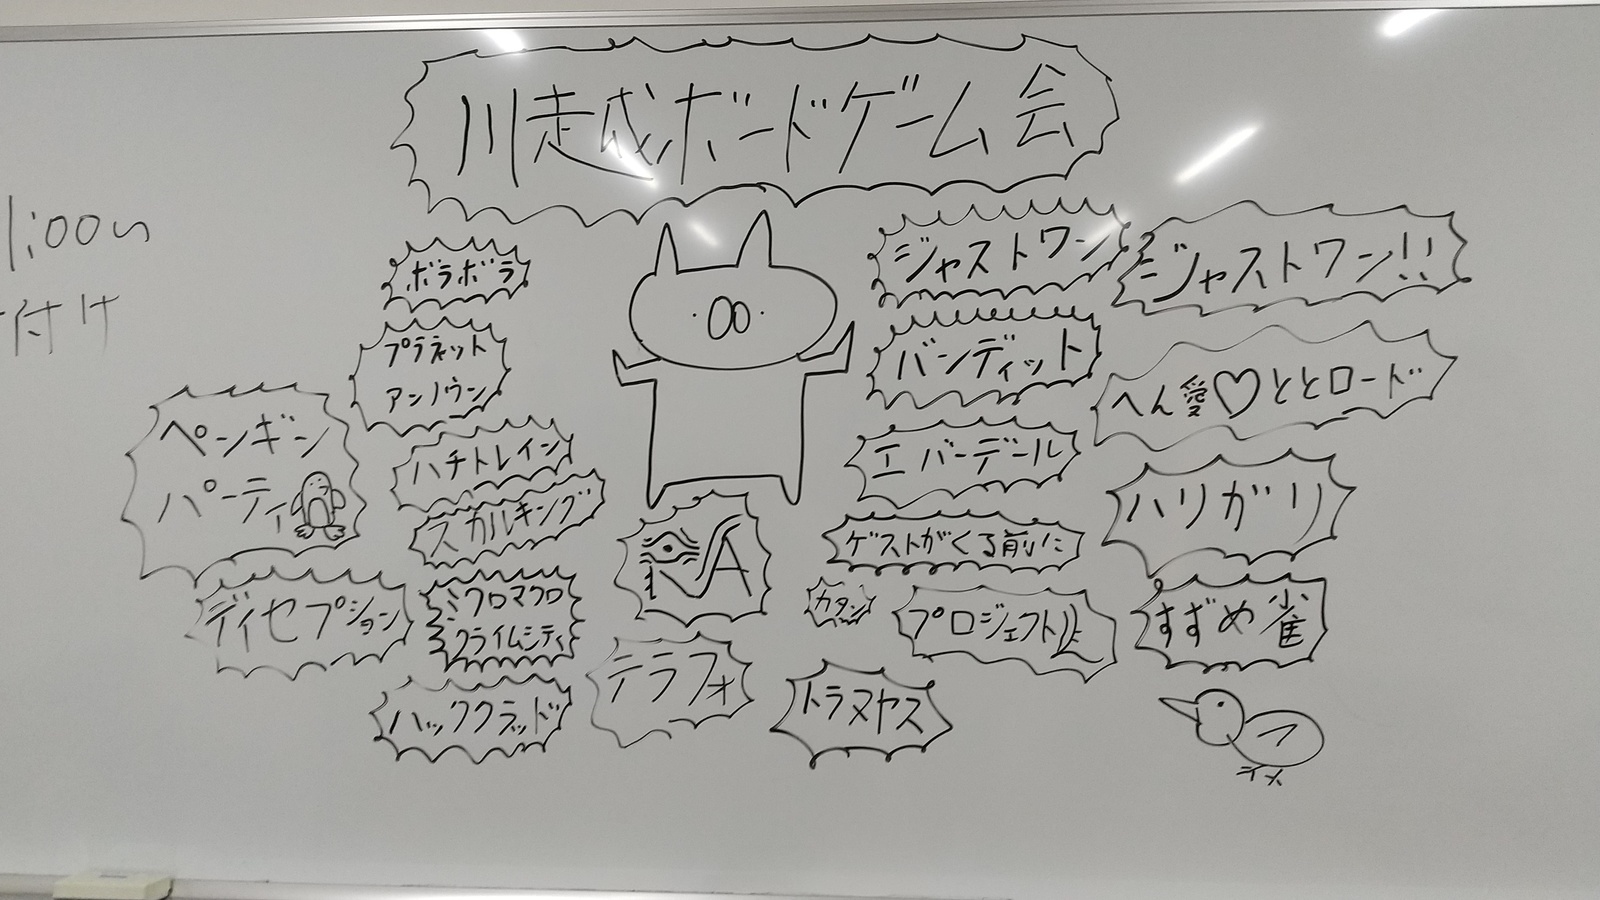 川越ボードゲーム会
1:00〜
付け
ボラボラ
プラネット
アンノウン
ペンギン
パーティ
ハチトレイン
スカルキング
ディセプション
ミクロマクロ
クライムシティ
ハックグラッド
RA
テラフォ
トラヌヤス
カタン
プロジェクトL
ゲストがくる前に
エバーデール
バンディット
ジャストワン
ジャストワン!!
へん愛♡ととロード
ハリガリ
すずめ雀